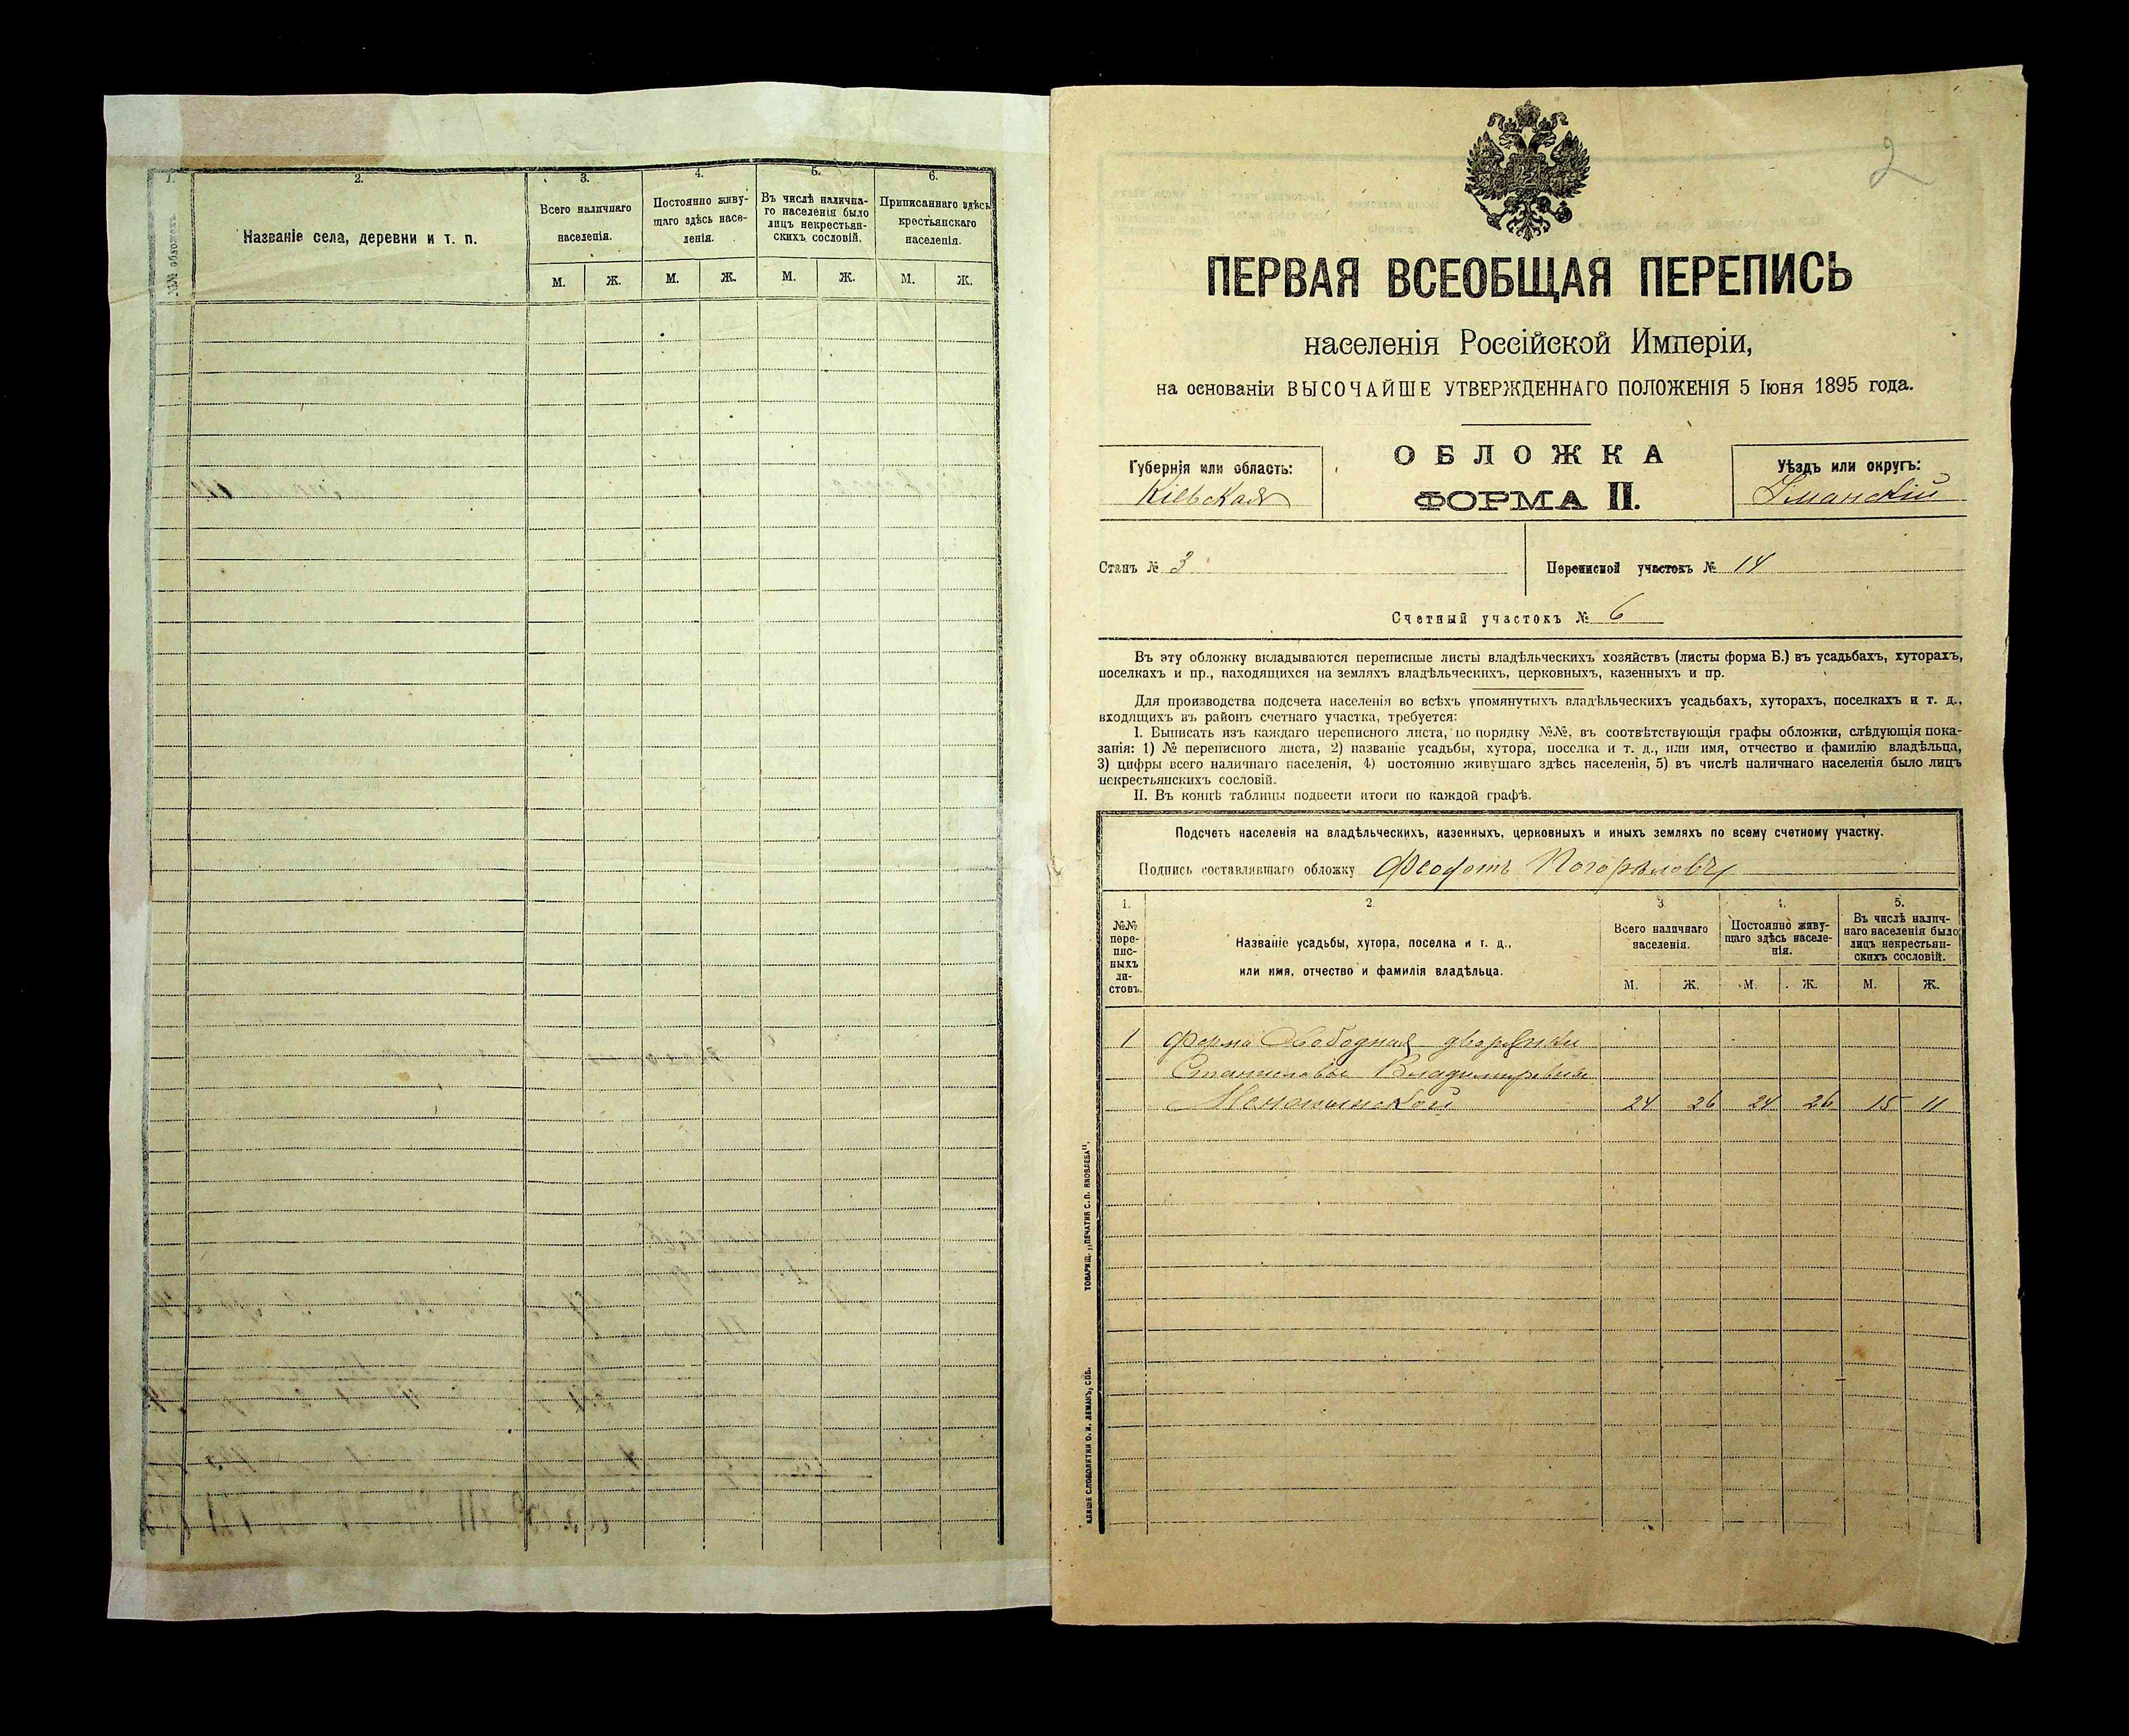 1.
2.
3.
4.
5.
6.
№№ обложекъ.
Названіе села, деревни и т. п.
Всего наличнаго населенія.
Постоянно живущаго здѣсь населенія.
Въ числѣ налична-
го населенія было
лицъ некрестьян-
скихъ сословій.
Приписаннаго здѣсь
крестьянскаго
населенія.
М. Ж. М. Ж. М. Ж. М. Ж.
2
ПЕРВАЯ ВСЕОБЩАЯ ПЕРЕПИСЬ
населенія Россійской Имперіи,
на основаніи ВЫСОЧАЙШЕ УТВЕРЖДЕННАГО ПОЛОЖЕНІЯ 5 Іюня 1895 года.
Губернія или область:
Кіевская
ОБЛОЖКА
ФОРМА II.
Уѣздъ или округъ:
Уманскій
Станъ № 3
Переписной участокъ № 14
Счетный участокъ № 6
Въ эту обложку вкладываются переписные листы владѣльческихъ хозяйствъ (листы форма Б.) въ усадьбахъ, хуторахъ,
поселкахъ и пр., находящихся на земляхъ владѣльческихъ, церковныхъ, казенныхъ и пр.
Для производства подсчета населенія во всѣхъ упомянутыхъ владѣльческихъ усадьбахъ, хуторахъ, поселкахъ и т. д.,
входящихъ въ районъ счетнаго участка, требуется:
I. Выписать изъ каждаго переписного листа, по порядку №№, въ соотвѣтствующія графы обложки, слѣдующія пока-
занія: 1) № переписного листа, 2) названіе усадьбы, хутора, поселка и т. д., или имя, отчество и фамилію владѣльца,
3) цифры всего наличнаго населенія, 4) постоянно живущаго здѣсь населенія, 5) въ числѣ наличнаго населенія было лицъ
некрестьянскихъ сословій.
II. Въ концѣ таблицы подвести итоги по каждой графѣ.
Подсчетъ населенія на владѣльческихъ, казенныхъ, церковныхъ и иныхъ земляхъ по всему счетному участку.
Подпись составлявшаго обложку Феодотъ Погорѣловъ
1.
2
3
4.
5.
№№
пере-
пис-
ныхъ
ли-
стовъ.
Названіе усадьбы, хутора, поселка и т. д.,
или имя, отчество и фамилія владѣльца.
Всего наличнаго
населенія.
Постоянно живу-
щаго здѣсь населе-
нія.
Въ числѣ налич-
наго населенія было
лицъ некрестьян-
скихъ сословій.
М. Ж. М. Ж. М. Ж.
1 Ферма Свободная дворянки
Станиславы Владимировны
24 26 24 26 15 11
ТОВАРИЩ. „ПЕЧАТНЯ С. П. ЯКОВЛЕВА".
КЛИШЕ СЛОВОЛИТНИ О. И. ЛЕМАНЪ, СПБ.